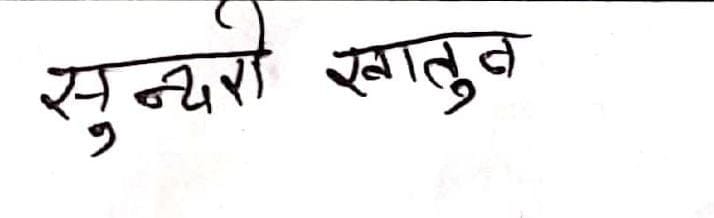 सुन्दरी खातुन